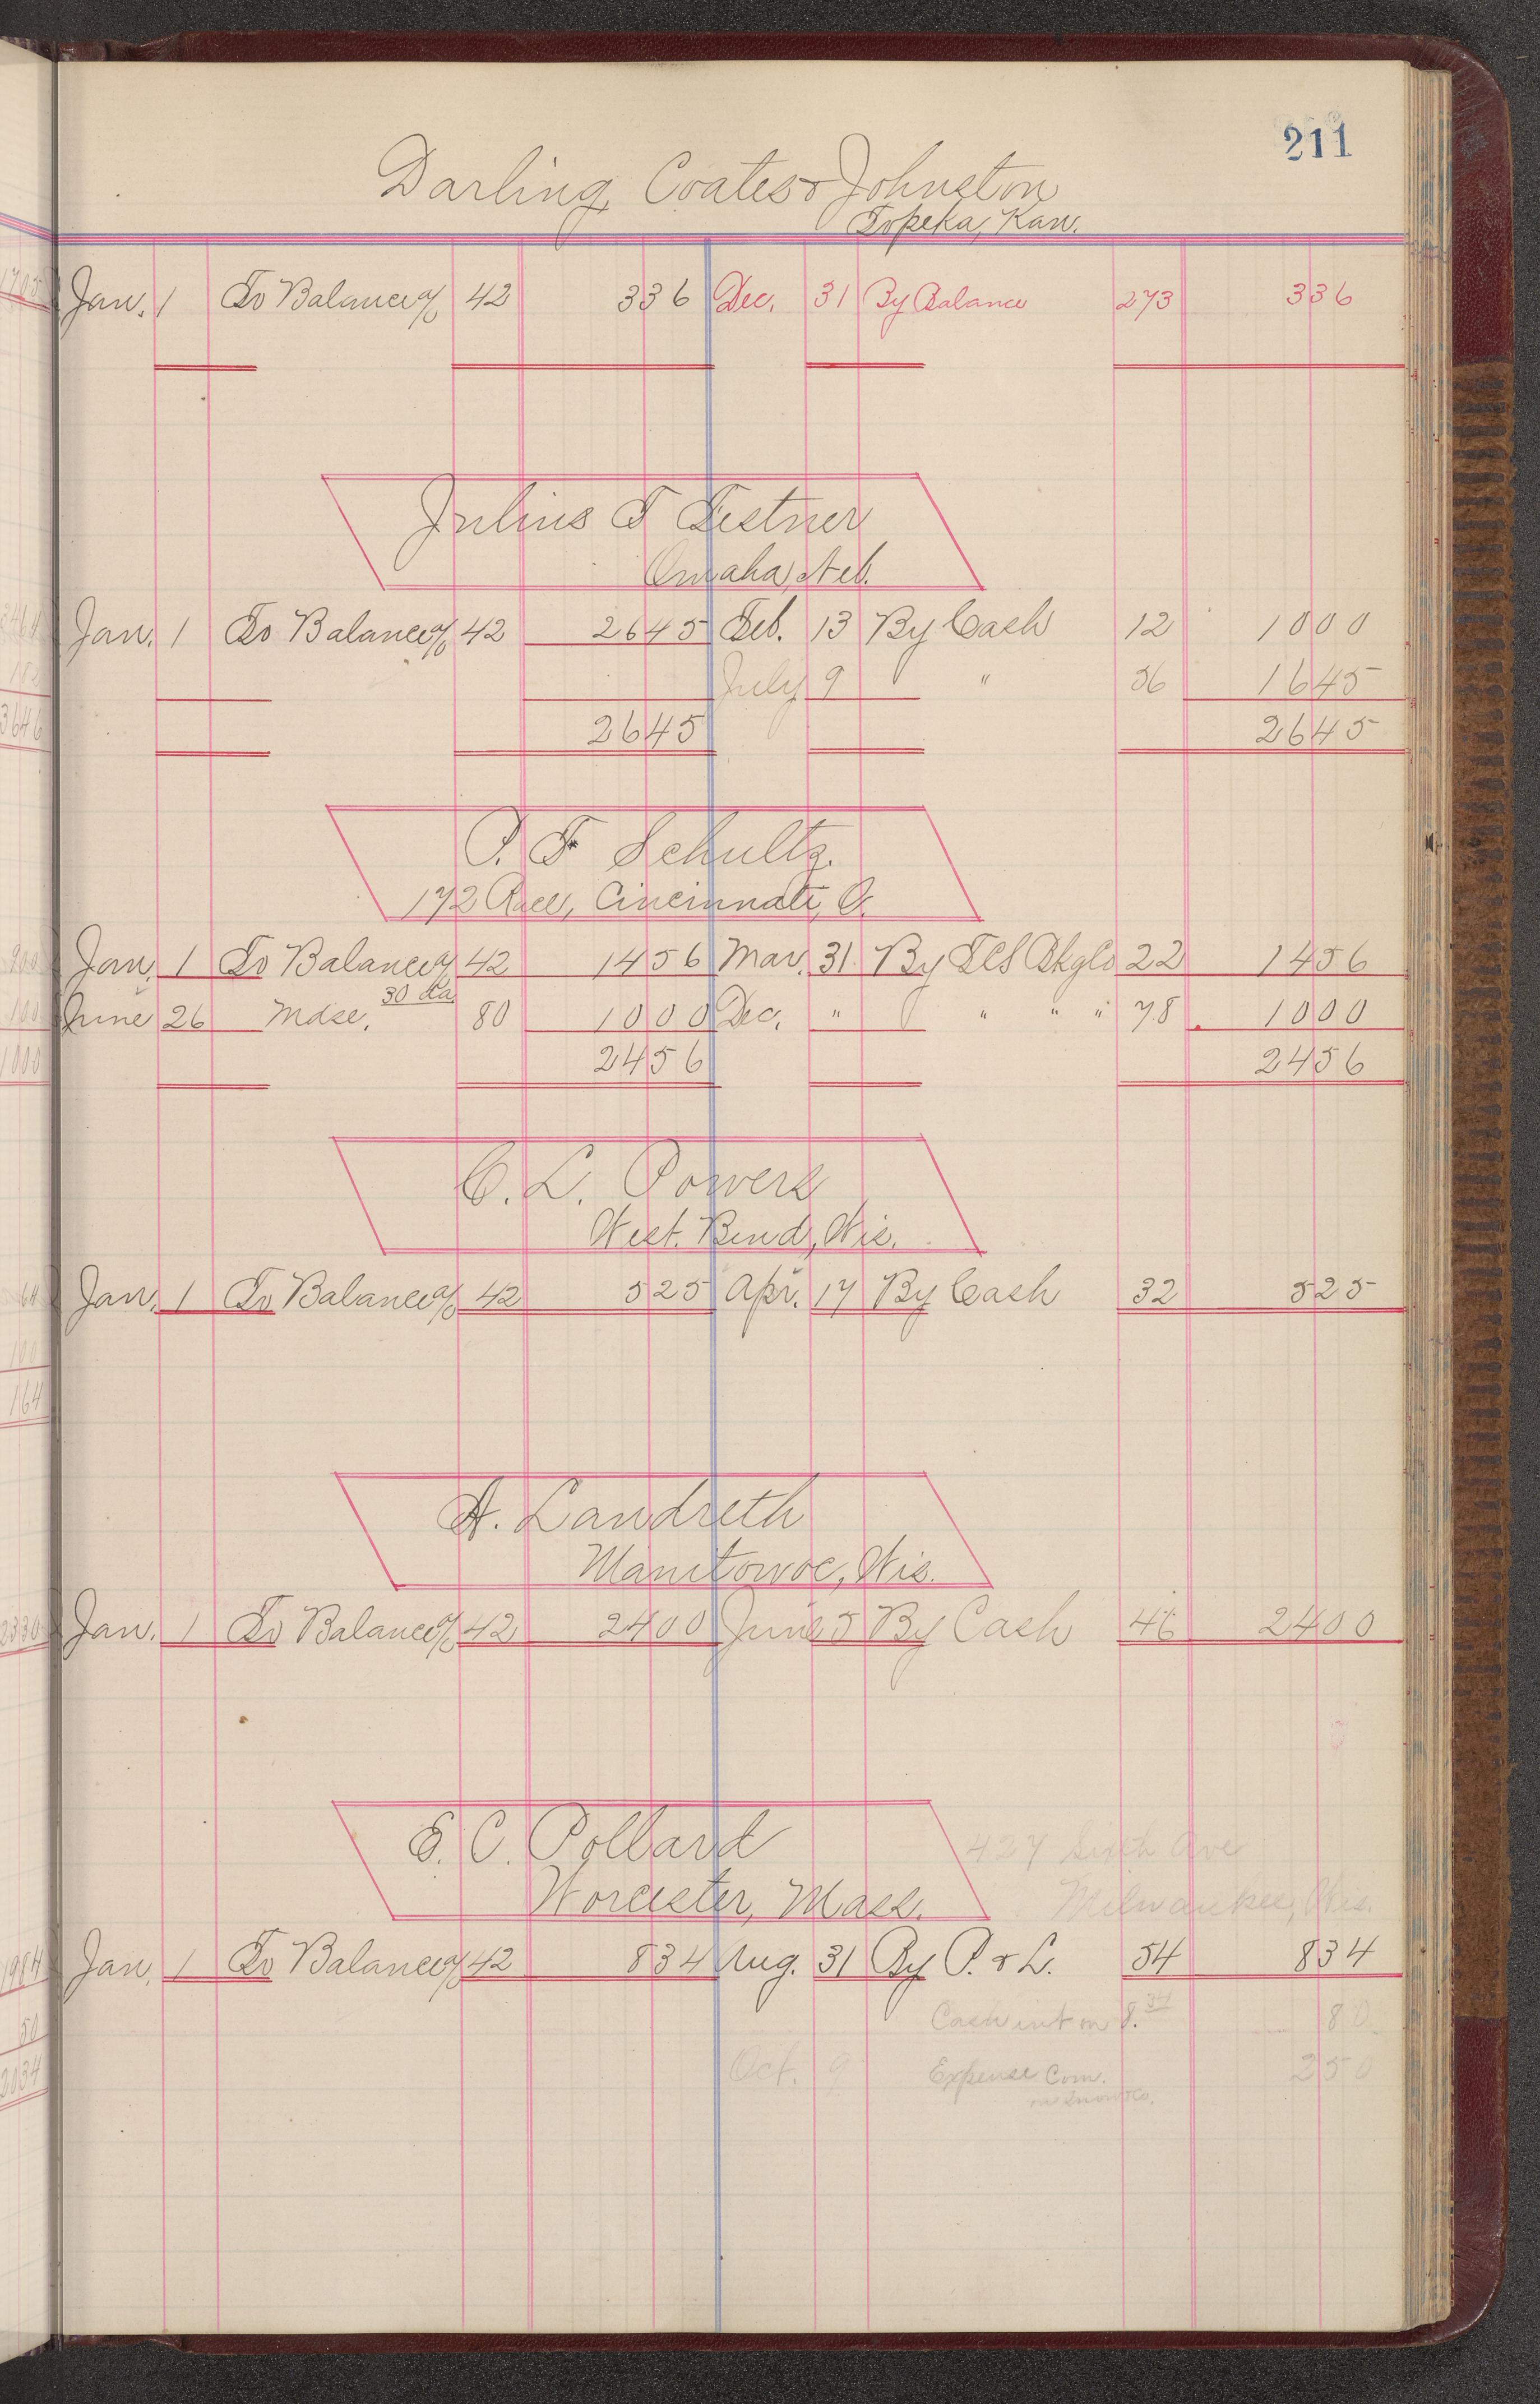 211
Darling, Coates & Johnston
Topeka, Kan.
Jan. 1 To Balance a/c 42 336 Dec. 31 By Balance 273 336
Julius T Festner
Omaha, Neb.
Jan. 1 To Balance a/c 42 2645 Feb. 13 By Cash 12 1000
July 9 " 56 1645
2645 2645
P. F Schultz.
172 Race, Cincinnati, O.
Jan. 1 To Balance a/c 42 1456 Mar. 31 By FCS Bkg Co 22 1456
June 26 Mdse. 30 da 80 1000 Dec. " " " " 78 1000
2456 2456
C. L. Powers
West. Bend, Wis.
Jan. 1 To Balance a/c 42 525 Apr. 17 By Cash 32 525
A. Landreth
Manitowoc, Wis.
Jan. 1 To Balance a/c 42 2400 June 5 By Cash 46 2400
E. C. Pollard
Worcester, Mass.
427 Sixth Ave
Milwaukee, Wis.
Jan. 1 To Balance a/c 42 834 Aug. 31 By P. & L. 54 834
Cash int on 8.34 80
Oct. 9 Expense Com. 250